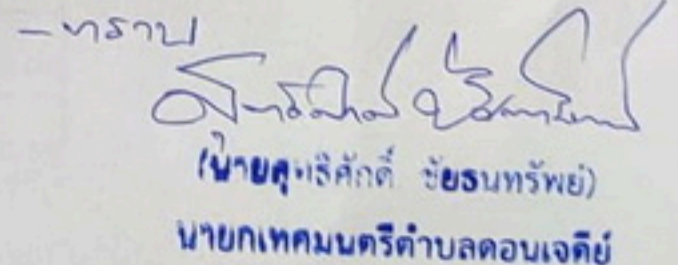 - ทราบ
(นายสุทธิศักดิ์ ชัยธนทรัพย์)
นายกเทศมนตรีตำบลดอนเจดีย์